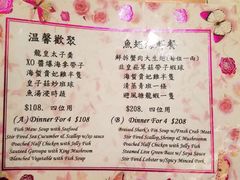 溫馨歡聚
龍皇太子羹
XO醬爆海季帶子
海蜇貴妃雞半隻
皇子菇炒班球
魚湯浸時蔬
$108. 四位用
(A) Dinner For 4 $108
Fish Maw Soup with Seafood
Stir Fried Sea Cucumber & Scallop w/xo sauce
Pouched Half Chicken with Jelly Fish
Sauteed Garoupa with King Mushroom
Blanched Vegetable with Fish Soup
海蜇貴妃雞半隻
$208. 四位用
(B) Dinner For 4 $208
Braised Shark's Fin Soup w/Fresh Crab Meat
Stir Fried Scallop w/Mushroom
Pouched Half Chicken with Jelly Fish
Sauteed Lima Green Bean w/ Soya Sheet
Stir Fried Lobster w/Spicy Minced Pork